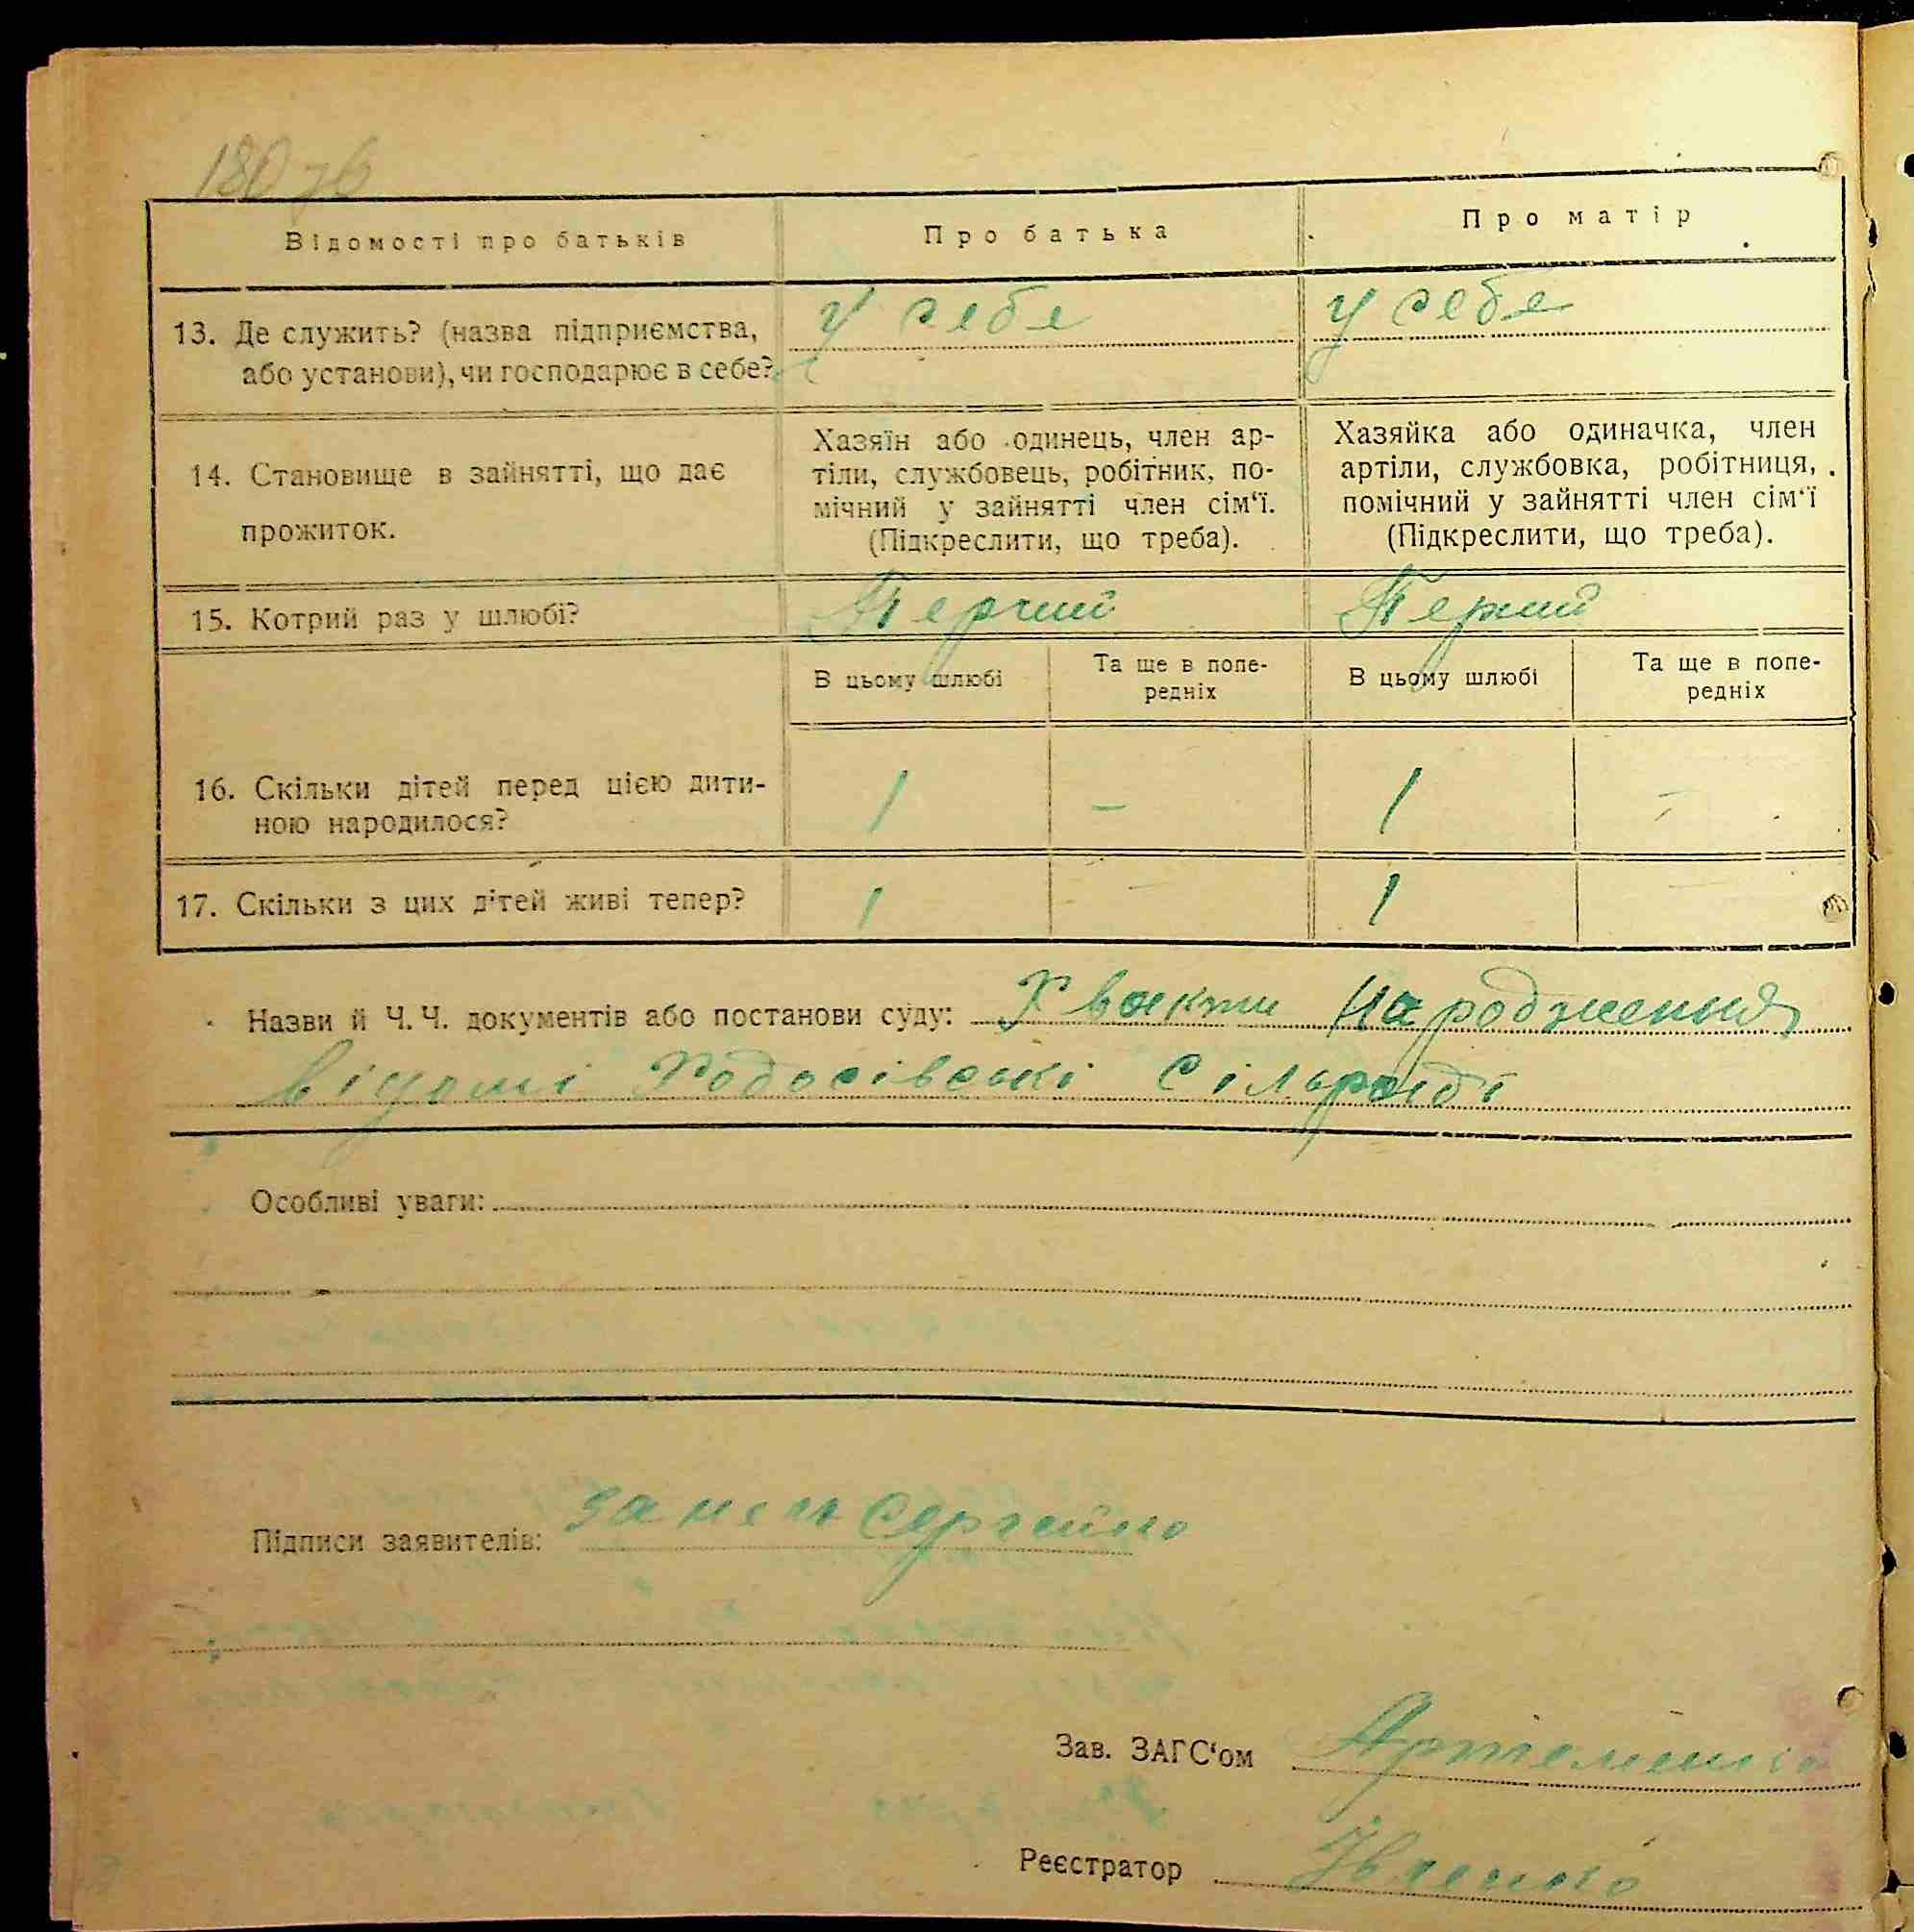 180 зв
Відомості про батьків
Про батька
Про матір
13. Де служить? (назва підприємства,
або установи), чи господарює в себе?
у себе
у себе
14. Становище в зайнятті, що дає
прожиток.
Хазяїн або одинець, член ар-
тіли, службовець, робітник, по-
мічний у зайнятті член сім‘ї.
(Підкреслити, що треба).
Хазяйка або одиначка, член
артіли, службовка, робітниця,
помічний у зайнятті член сім‘ї
(Підкреслити, що треба).
15. Котрий раз у шлюбі?
Перший
Перший
В цьому шлюбі
Та ще в попе-
редніх
В цьому шлюбі
Та ще в попе-
редніх
16. Скільки дітей перед цією дити-
ною народилося?
1 – 1 –
17. Скільки з цих дітей живі тепер?
1 – 1 –
Назви й Ч. Ч. документів або постанови суду: Хвакти народження
відомі Ходосівські Сільраді
Особливі уваги:
Підписи заявителів:
Зав. ЗАГС‘ом Артеменко
Реєстратор